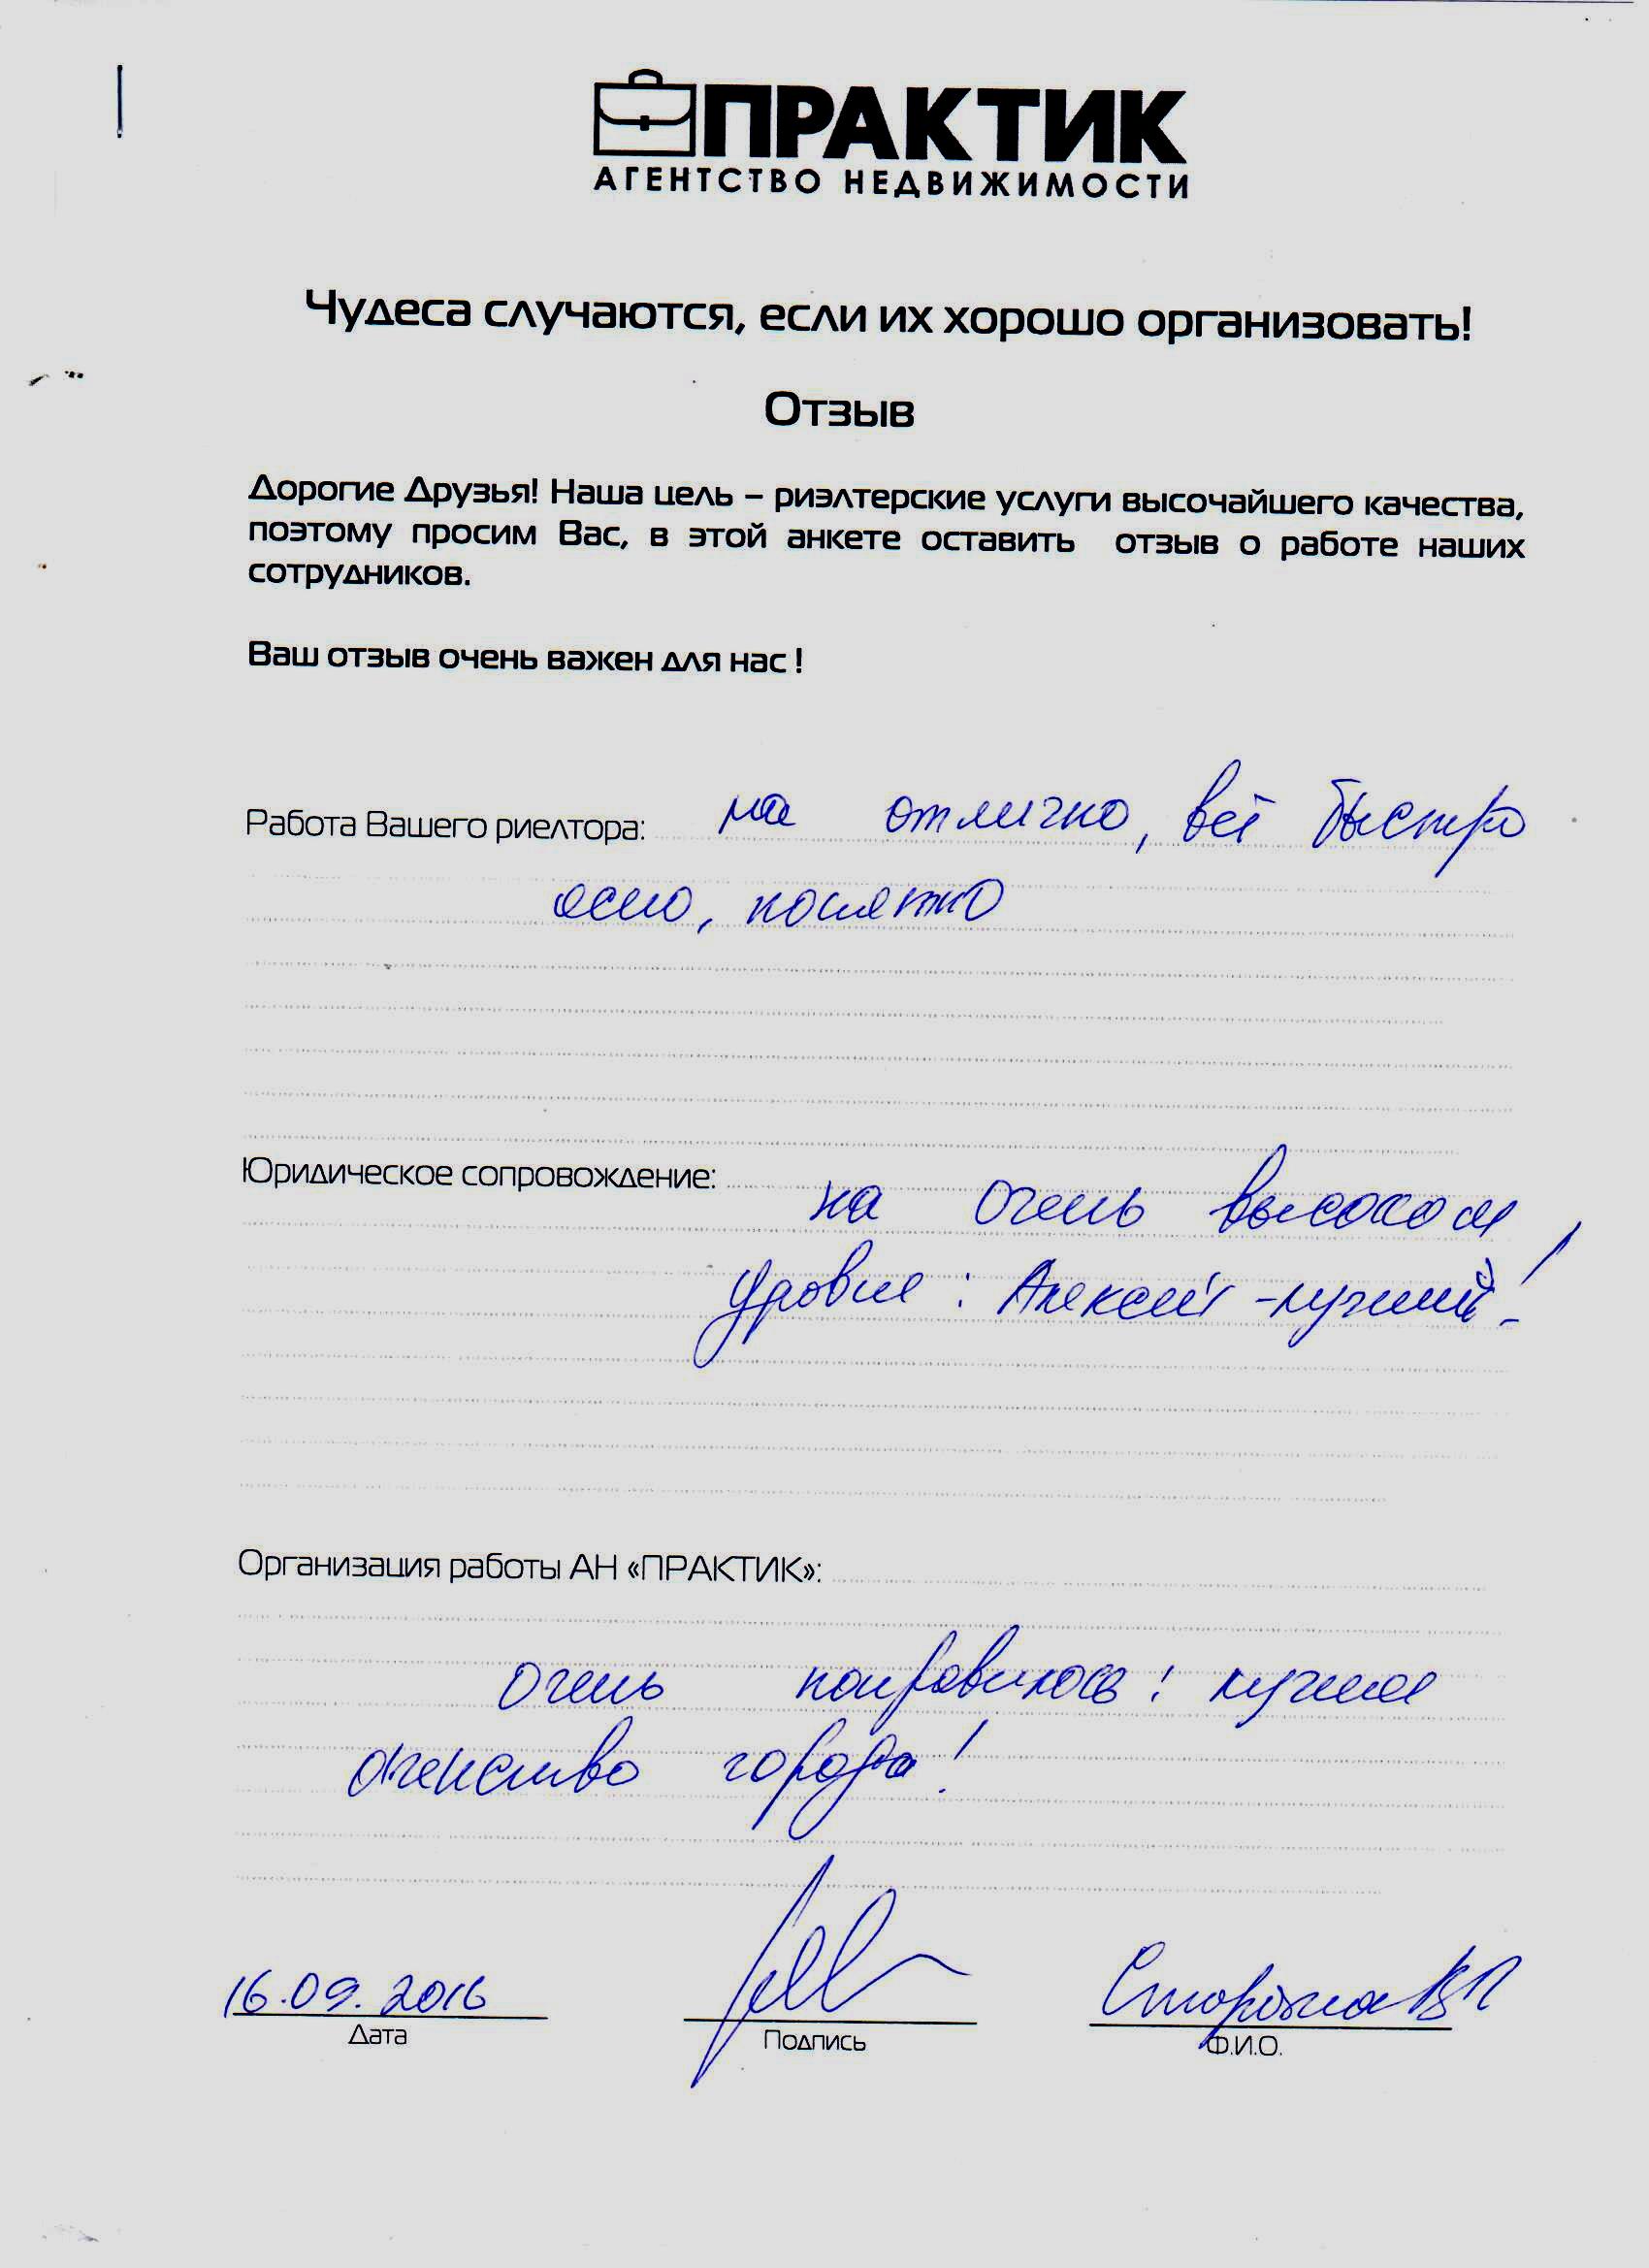 ПРАКТИК
АГЕНТСТВО НЕДВИЖИМОСТИ
Чудеса случаются, если их хорошо организовать!
Отзыв
Дорогие Друзья! Наша цель – риэлтерские услуги высочайшего качества,
поэтому просим Вас, в этой анкете оставить отзыв о работе наших
сотрудников.
Ваш отзыв очень важен для нас !
Работа Вашего риелтора: на отлично, всё быстро
ясно, понятно
Юридическое сопровождение: на очень высоком
уровне : Алексей - лучший !
Организация работы АН «ПРАКТИК»:
очень понравилось ! лучшее
агенство города !
16.09.2016
Дата
Подпись
Ф.И.О.